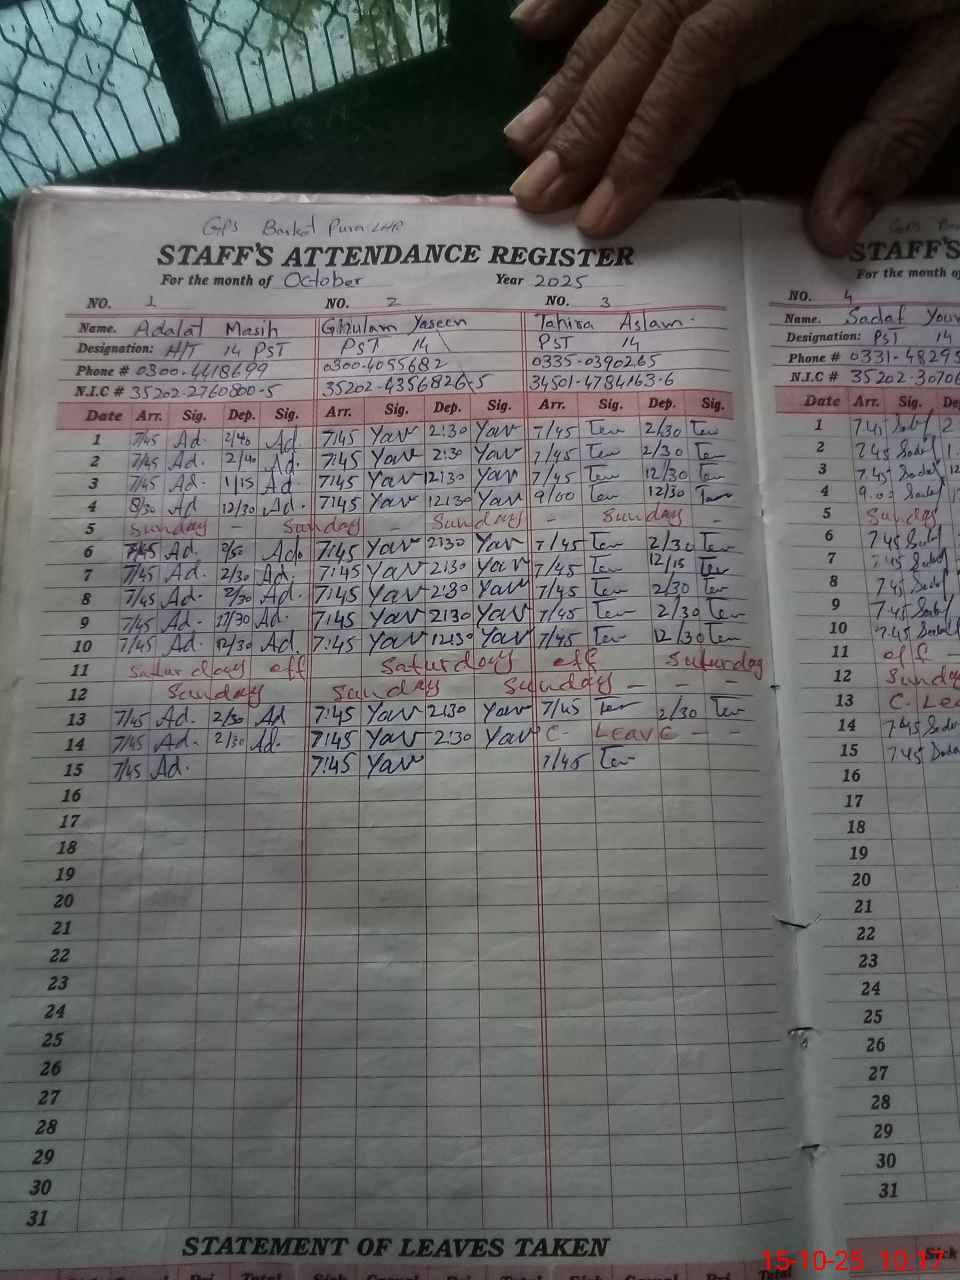 GPS Barkat Pura LHR
STAFF'S ATTENDANCE REGISTER
For the month of October Year 2025
NO. 1 NO. 2 NO. 3
Name. Adalat Masih Ghulam Yaseen Tahira Aslam.
Designation: H/T 14 PST PST 14 PST 14
Phone # 0300-4418699 0300-4055682 0335-0390265
N.I.C # 35202-2760800-5 35202-4356826-5 34501-4784163-6
Date Arr. Sig. Dep. Sig. Arr. Sig. Dep. Sig. Arr. Sig. Dep. Sig.
1 7/45 Ad. 2/40 Ad. 7:45 Yav 2:30 Yav 7/45 2/30
2 7/45 Ad. 2/40 Ad. 7:45 Yav 2:30 Yav 7/45 2/30
3 7/45 Ad. 1/15 Ad. 7:45 Yav 12:30 Yav 7/45 12/30
4 8/30 Ad. 12/30 Ad. 7:45 Yav 12:30 Yav 9/00 12/30
5 Sunday - Sunday - Sunday - Sunday -
6 7/45 Ad. Ad. 7:45 Yav 2:30 Yav 7/45 2/30
7 7/45 Ad. 2/30 Ad. 7:45 Yav 2:30 Yav 7/45 12/15
8 7/45 Ad. 2/30 Ad. 7:45 Yav 2:30 Yav 7/45 2/30
9 7/45 Ad. Ad. 7:45 Yav 2:30 Yav 7/45 2/30
10 7/45 Ad. 12/30 Ad. 7:45 Yav 12:30 Yav 7/45 12/30
11 Saturday off Saturday off Saturday
12 Sunday Sunday Sunday - - -
13 7/45 Ad. 2/30 Ad 7:45 Yav 2:30 Yav 7/45 2/30
14 7/45 Ad. 2/30 Ad. 7:45 Yav 2:30 Yav C. LEAVE - -
15 7/45 Ad. 7:45 Yav 7/45
16
17
18
19
20
21
22
23
24
25
26
27
28
29
30
31
STATEMENT OF LEAVES TAKEN
STAFF'S
For the month of
NO. 4
Name: Sadaf
Designation: PST 14
Phone # 0331-48295
N.I.C # 35202-30706
Date Arr. Sig. Dep.
1 7.45 Sadaf 2
2 7.45 Sadaf
3 7.45 Sadaf 12
4 9.00 Sadaf
5 Sunday
6 7.45 Sadaf
7 7.45 Sadaf
8 7.45 Sadaf
9 7.45 Sadaf
10 7.45 Sadaf
11 off -
12 Sunday
13 C. Lea
14 7.45 Sadaf
15 7.45 Sadaf
16
17
18
19
20
21
22
23
24
25
26
27
28
29
30
31
15-10-25 10:17